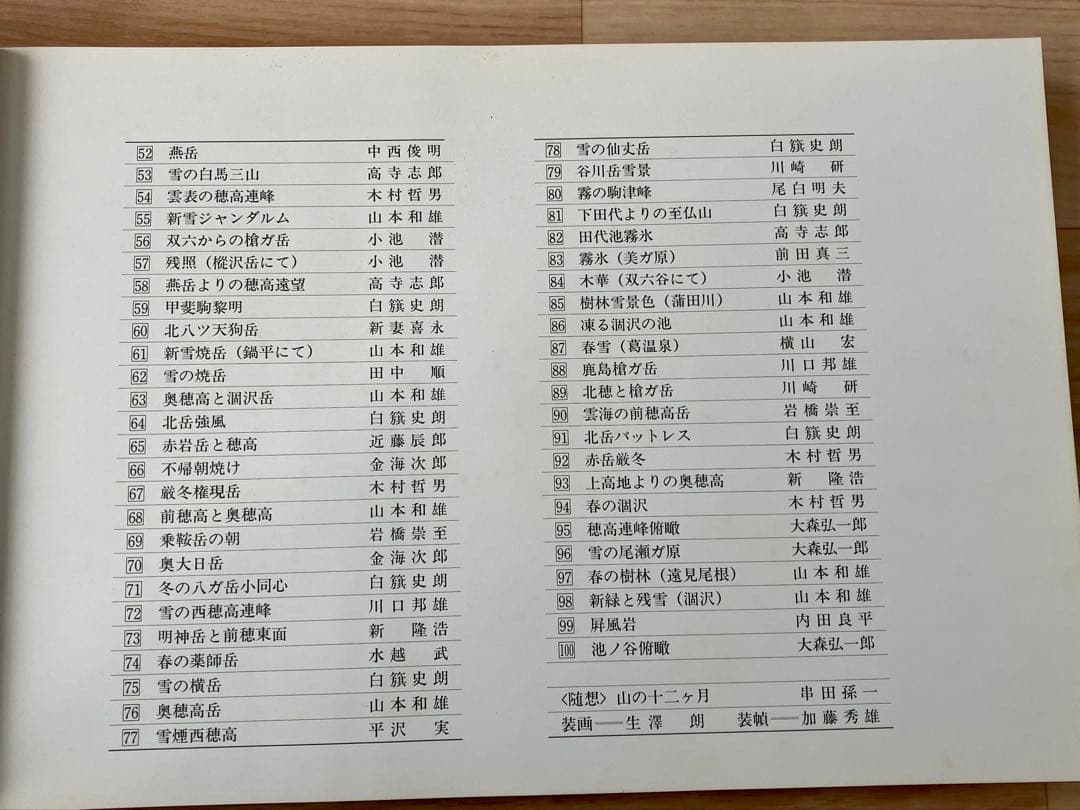 52 燕岳 中西俊明
53 雪の白馬三山 高寺志郎
54 雲表の穂高連峰 木村哲男
55 新雪ジャンダルム 山本和雄
56 双六からの槍ガ岳 小池 潜
57 残照（樅沢岳にて） 小池 潜
58 燕岳よりの穂高遠望 高寺志郎
59 甲斐駒黎明 白籏史朗
60 北八ツ天狗岳 新妻喜永
61 新雪焼岳（鍋平にて） 山本和雄
62 雪の焼岳 田中 順
63 奥穂高と涸沢岳 山本和雄
64 北岳強風 白籏史朗
65 赤岩岳と穂高 近藤辰郎
66 不帰朝焼け 金海次郎
67 厳冬権現岳 木村哲男
68 前穂高と奥穂高 山本和雄
69 乗鞍岳の朝 岩橋崇至
70 奥大日岳 金海次郎
71 冬の八ガ岳小同心 白籏史朗
72 雪の西穂高連峰 川口邦雄
73 明神岳と前穂東面 新 隆浩
74 春の薬師岳 水越 武
75 雪の横岳 白籏史朗
76 奥穂高岳 山本和雄
77 雪煙西穂高 平沢 実
78 雪の仙丈岳 白籏史朗
79 谷川岳雪景 川崎 研
80 霧の駒津峰 尾白明夫
81 下田代よりの至仏山 白籏史朗
82 田代池霧氷 高寺志郎
83 霧氷（美ガ原） 前田真三
84 木華（双六谷にて） 小池 潜
85 樹林雪景色（蒲田川） 山本和雄
86 凍る涸沢の池 山本和雄
87 春雪（葛温泉） 横山 宏
88 鹿島槍ガ岳 川口邦雄
89 北穂と槍ガ岳 川崎 研
90 雲海の前穂高岳 岩橋崇至
91 北岳バットレス 白籏史朗
92 赤岳厳冬 木村哲男
93 上高地よりの奥穂高 新 隆浩
94 春の涸沢 木村哲男
95 穂高連峰俯瞰 大森弘一郎
96 雪の尾瀬ガ原 大森弘一郎
97 春の樹林（遠見尾根） 山本和雄
98 新緑と残雪（涸沢） 山本和雄
99 屏風岩 内田良平
100 池ノ谷俯瞰 大森弘一郎
〈随想〉山の十二ヶ月 串田孫一
装画──生澤 朗 装幀──加藤秀雄